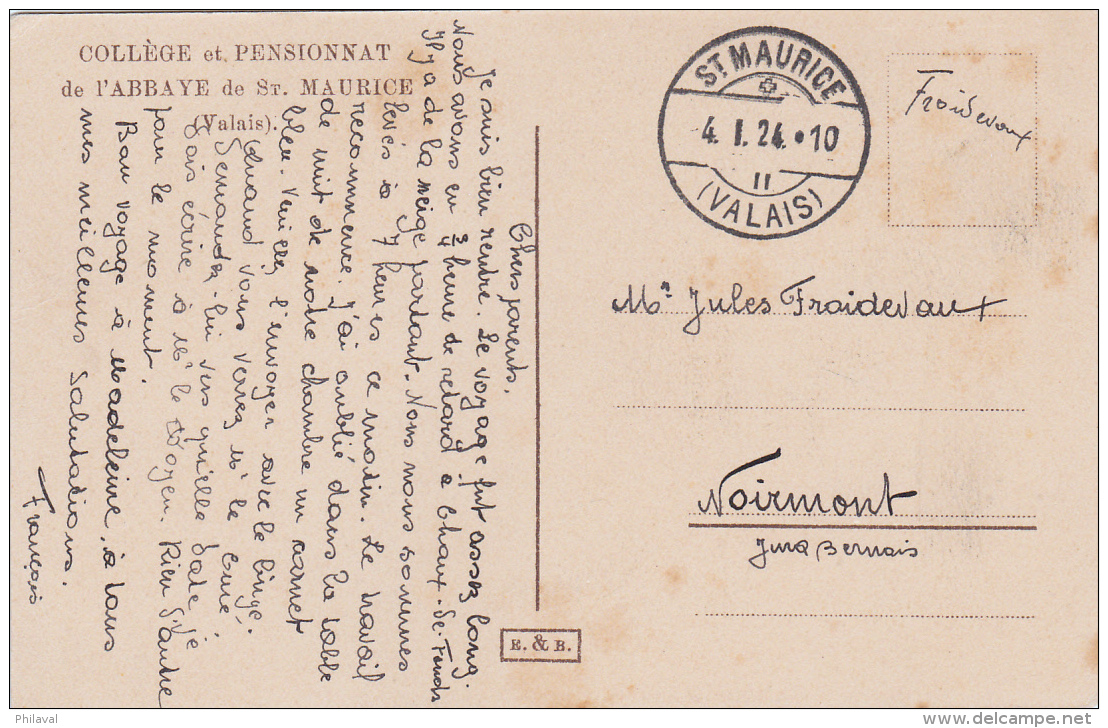 COLLÈGE et PENSIONNAT
de l'ABBAYE de ST. MAURICE
(Valais).
Chers parents,
Je suis bien rentré. Le voyage fut assez long.
Nous avons eu 3/4 heure de retard à Chaux-de-Fonds
Il y a de la neige partout. Nous nous sommes
levés à 7 heures ce matin. Le travail
recommence. J'ai oublié dans la table
de nuit de notre chambre un carnet
bleu. Veuillez l'envoyer avec le linge.
Quand vous verrez Mr le curé,
demandez-lui vers quelle date je
dois écrire à Mr le Doyen. Rien d'autre
pour le moment.
Bon voyage à Madeleine, à tous
mes meilleures salutations.
François
ST MAURICE
4. I. 24. 10
II
(VALAIS)
Froidevaux
Mr Jules Froidevaux
Noirmont
Jura Bernois
E. & B.
Philaval
www.delcampe.net